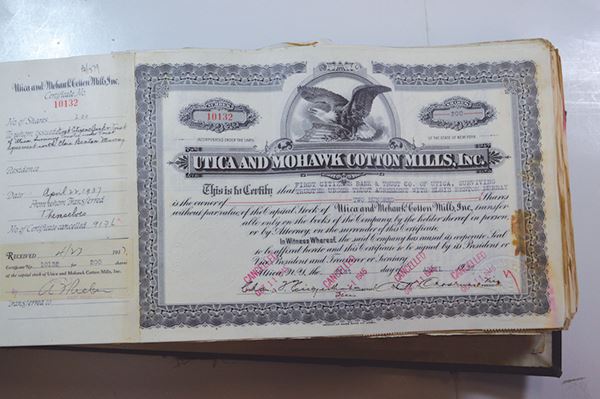 4/27
Utica and Mohawk Cotton Mills, Inc.
Certificate No.
10132
No. of Shares 200
To whom issued
Residence
Date April 22, 1937
From whom Transferred
Themselves
No of Certificate cancelled
RECEIVED 4/27 1937
Certificate No. 10132 for 200 shares
of the capital stock of Utica and Mohawk Cotton Mills, Inc.
Transferred to
NUMBER
10132
SHARES
200
INCORPORATED UNDER THE LAWS
OF THE STATE OF NEW YORK
UTICA AND MOHAWK COTTON MILLS, INC.
This is to Certify that FIRST CITIZENS BANK & TRUST CO. OF UTICA, SURVIVING
is the owner of TWO HUNDRED Shares
without par value of the Capital Stock of Utica and Mohawk Cotton Mills, Inc., transfer-
able only on the books of the Company by the holder thereof in person
or by Attorney, on the surrender of this Certificate.
In Witness Whereof, the said Company has caused its corporate Seal
to be affixed hereto and this Certificate to be signed by its President or
Vice President and Treasurer or Secretary.
CANCELLED
CANCELLED
CANCELLED
CANCELLED